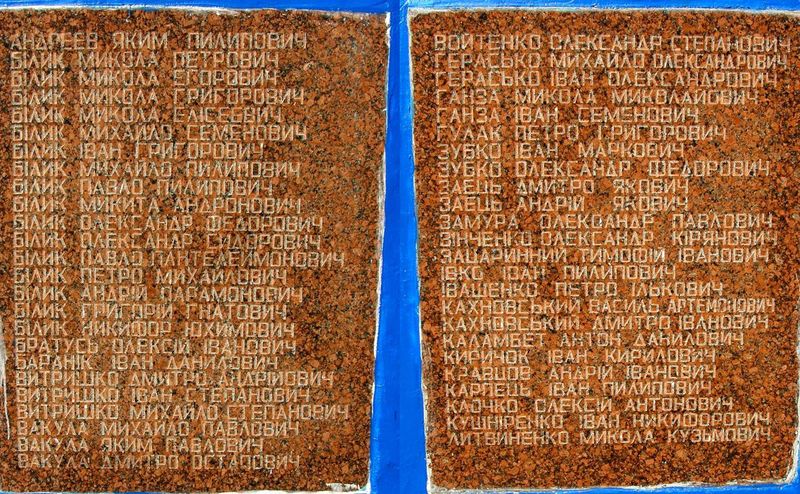 АНДРЕЕВ ЯКИМ ПИЛИПОВИЧ
БІЛИК МИКОЛА ПЕТРОВИЧ
БІЛИК МИКОЛА ЄГОРОВИЧ
БІЛИК МИКОЛА ГРИГОРОВИЧ
БІЛИК МИКОЛА ЕЛІСЕЕВИЧ
БІЛИК МИХАЙЛО СЕМЕНОВИЧ
БІЛИК ІВАН ГРИГОРОВИЧ
БІЛИК МИХАЙЛО ПИЛИПОВИЧ
БІЛИК ПАВЛО ПИЛИПОВИЧ
БІЛИК МИКИТА АНДРОНОВИЧ
БІЛИК ОЛЕКСАНДР ФЕДОРОВИЧ
БІЛИК ОЛЕКСАНДР СИДОРОВИЧ
БІЛИК ПАВЛО ПАНТЕЛЕЙМОНОВИЧ
БІЛИК ПЕТРО МИХАЙЛОВИЧ
БІЛИК АНДРІЙ ПАРАМОНОВИЧ
БІЛИК ГРИГОРІЙ ГНАТОВИЧ
БІЛИК НИКИФОР ЮХИМОВИЧ
БРАТУСЬ ОЛЕКСІЙ ІВАНОВИЧ
БАРАНІК ІВАН ДАНИЛОВИЧ
ВИТРИШКО ДМИТРО АНДРІЙОВИЧ
ВИТРИШКО ІВАН СТЕПАНОВИЧ
ВИТРИШКО МИХАЙЛО СТЕПАНОВИЧ
ВАКУЛА МИХАЙЛО ПАВЛОВИЧ
ВАКУЛА ЯКИМ ПАВЛОВИЧ
ВАКУЛА ДМИТРО ОСТАПОВИЧ
ВОЙТЕНКО ОЛЕКСАНДР СТЕПАНОВИЧ
ГЕРАСЬКО МИХАЙЛО ОЛЕКСАНДРОВИЧ
ГЕРАСЬКО ІВАН ОЛЕКСАНДРОВИЧ
ГАНЗА МИКОЛА МИКОЛАЙОВИЧ
ГАНЗА ІВАН СЕМЕНОВИЧ
ГУЛАК ПЕТРО ГРИГОРОВИЧ
ЗУБКО ІВАН МАРКОВИЧ
ЗУБКО ОЛЕКСАНДР ФЕДОРОВИЧ
ЗАЕЦЬ ДМИТРО ЯКОВИЧ
ЗАЕЦЬ АНДРІЙ ЯКОВИЧ
ЗАМУРА ОЛЕКСАНДР ПАВЛОВИЧ
ЗІНЧЕНКО ОЛЕКСАНДР КІРЯНОВИЧ
ЗАЦАРИННИЙ ТИМОФІЙ ІВАНОВИЧ
ІВКО ІВАН ПИЛИПОВИЧ
ІВАЩЕНКО ПЕТРО ІЛЬКОВИЧ
КАХНОВСЬКИЙ ВАСИЛЬ АРТЕМОНОВИЧ
КАХНОВСЬКИЙ ДМИТРО ІВАНОВИЧ
КАЛАМБЕТ АНТОН ДАНИЛОВИЧ
КИРИЧОК ІВАН КИРИЛОВИЧ
КРАВЦОВ АНДРІЙ ІВАНОВИЧ
КАРПЕЦЬ ІВАН ПИЛИПОВИЧ
КЛОЧКО ОЛЕКСІЙ АНТОНОВИЧ
КУШНІРЕНКО ІВАН НИКИФОРОВИЧ
ЛИТВИНЕНКО МИКОЛА КУЗЬМОВИЧ